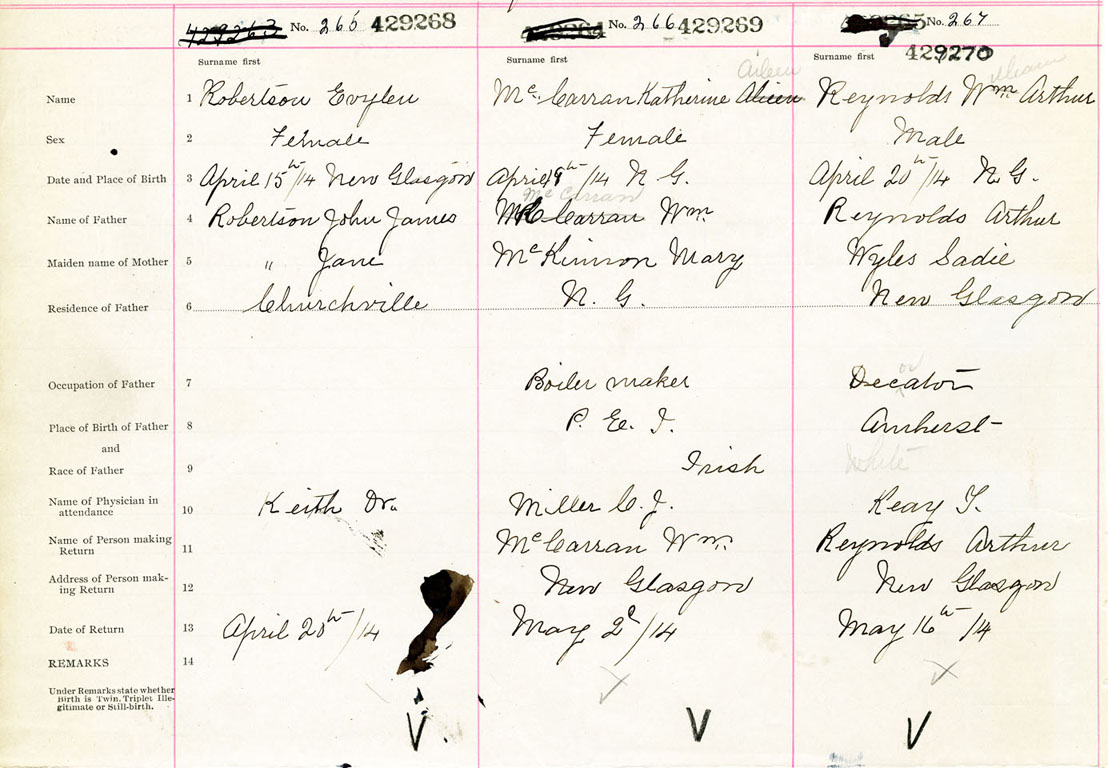 429263 No. 265 429268 No. 266 429269 No. 267
429270
Surname first Surname first Surname first
Aileen
Name 1 Robertson Evylen McCarran Katherine Alieen Reynolds Wm Arthur
Sex 2 Female Female Male
Date and Place of Birth 3 April 15th/14 New Glasgow April 19th/14 N. G. April 20th/14 N. G.
McCarran
Name of Father 4 Robertson John James McCarran Wm. Reynolds Arthur
Maiden name of Mother 5 " Jane McKinnon Mary Wyles Sadie
Residence of Father 6 Churchville N. G. New Glasgow
or
Occupation of Father 7 Boiler maker Decator
Place of Birth of Father 8 P. E. I. Amherst
and
Race of Father 9 Irish White
Name of Physician in attendance 10 Keith Dr. Miller C. J. Keay T.
Name of Person making Return 11 McCarran Wm. Reynolds Arthur
Address of Person making Return 12 New Glasgow New Glasgow
Date of Return 13 April 20th/14 May 2d/14 May 16th/14
REMARKS 14
Under Remarks state whether
Birth is Twin, Triplet Ille-
gitimate or Still-birth.